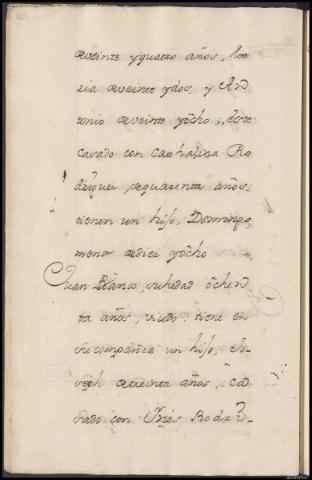 deveinte yquatro años,
ria deveinte ydos, y An
tonio deveinte yôcho, este
casado con Cathalina Ro
driguez, dequarenta años,
tienen un hijo, Domingo,
menor dediez yôcho
Juan Blanco, suhedad ôchen
ta años, viudo: tiene en
sucompañia un hijo, Jo-
seph detreinta años, ca
sado con Ines Rodri-